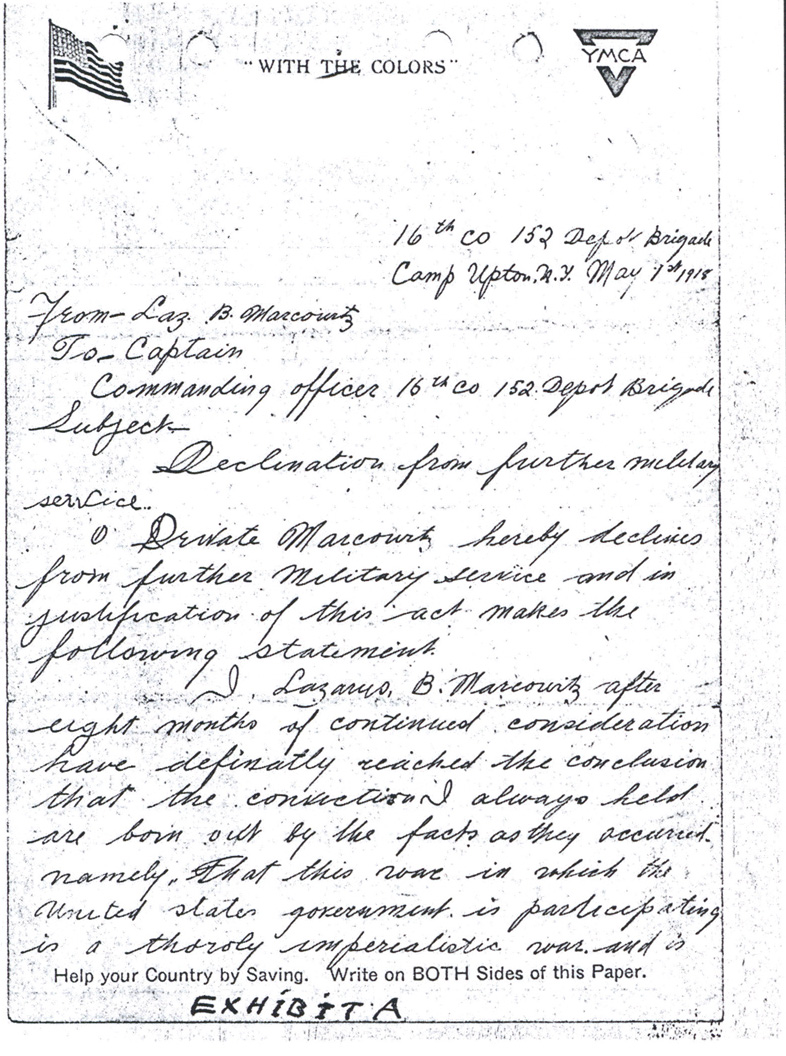 "WITH THE COLORS"
YMCA
16th co 152 Depot Brigade
Camp Upton, N.Y. May 1st 1918
From- Laz. B. Marcowitz
To- Captain
Commanding officer 16th co 152. Depot Brigade
Subject-
Declination from further military
service.
Private Marcowitz hereby declines
from further Military service and in
justification of this act makes the
following statement.
I, Lazarus, B. Marcowitz after
eight months of continued consideration
have definatly reached the conclusion
that the conviction I always held
are born out by the facts as they occurred.
namely, That this war in which the
United states government. is participating
is a thoroly imperialistic war. and is
Help your Country by Saving. Write on BOTH Sides of this Paper.
EXHIBIT A